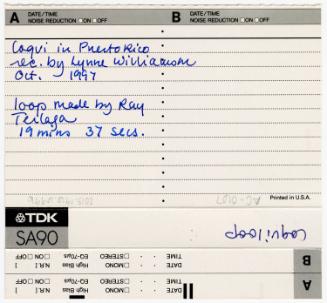 A DATE/TIME
NOISE REDUCTION □ON □OFF
B DATE/TIME
NOISE REDUCTION □ON □OFF
Coqui in Puerto Rico
rec. by Lynne Williamson
Oct. 1997
loop made by Ray
19 mins 37 secs.
Printed in U.S.A.
TDK
SA90
coqui loop
B
DATE
TIME
□MONO □STEREO
High Bias EQ-70μs
N.R.[ ]
□ON □OFF
A
DATE
TIME
□MONO □STEREO
High Bias EQ-70μs
N.R.[ ]
□ON □OFF